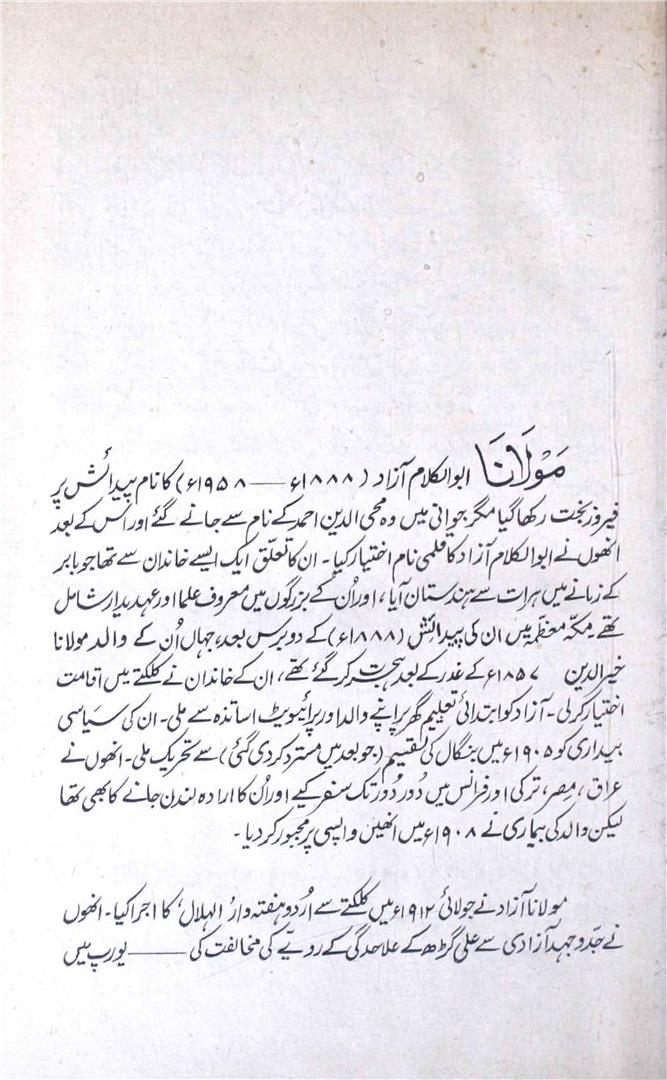 مَوْلَانَا ابوالکلام آزاد (۱۸۸۸ء — ۱۹۵۸ء) کا نام پیدائش پر
فیروز بخت رکھا گیا مگر جوانی میں وہ محی الدین احمد کے نام سے جانے گئے اور اس کے بعد
انھوں نے ابوالکلام آزاد کا قلمی نام اختیار کیا۔ ان کا تعلّق ایک ایسے خاندان سے تھا جو بابر
کے زمانے میں ہرات سے ہندستان آیا، اور اُن کے بزرگوں میں معروف علما اور عہدیدار شامل
تھے۔ مکہّ معظمہّ میں ان کی پیدائش (۱۸۸۸ء) کے دو برس بعد، جہاں اُن کے والد مولانا
خیرالدین ۱۸۵۷ء کے غدر کے بعد ہجرت کر گئے تھے، ان کے خاندان نے کلکتے میں اقامت
اختیار کر لی۔ آزاد کو ابتدائی تعلیم گھر پر اپنے والد اور پرائیویٹ اساتذہ سے ملی۔ ان کی سیاسی
بیداری کو ۱۹۰۵ء میں بنگال کی تقسیم (جو بعد میں مسترد کر دی گئی) سے تحریک ملی۔ انھوں نے
عراق، مِصر، ترکی اور فرانس میں دُور دُور تک سفر کیے اور اُن کا ارادہ لندن جانے کا بھی تھا
لیکن والد کی بیماری نے ۱۹۰۸ء میں انھیں واپسی پر مجبور کر دیا۔
مولانا آزاد نے جولائی ۱۹۱۲ء میں کلکتے سے اُردو ہفتہ وار 'الہلال' کا اجرا کیا۔ انھوں
نے جدّوجہد آزادی سے علی گڑھ کے علاحدگی کے رویّے کی مخالفت کی —— یورپ میں